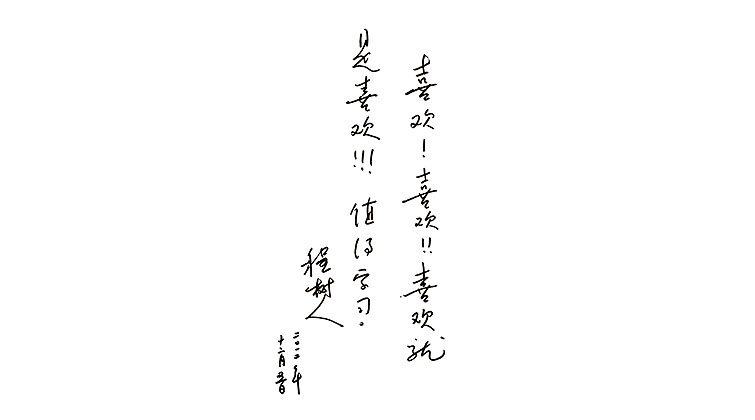 喜欢！喜欢!!喜欢就
是喜欢!!!值得学习。
程树人
二〇二〇年
十二月五日